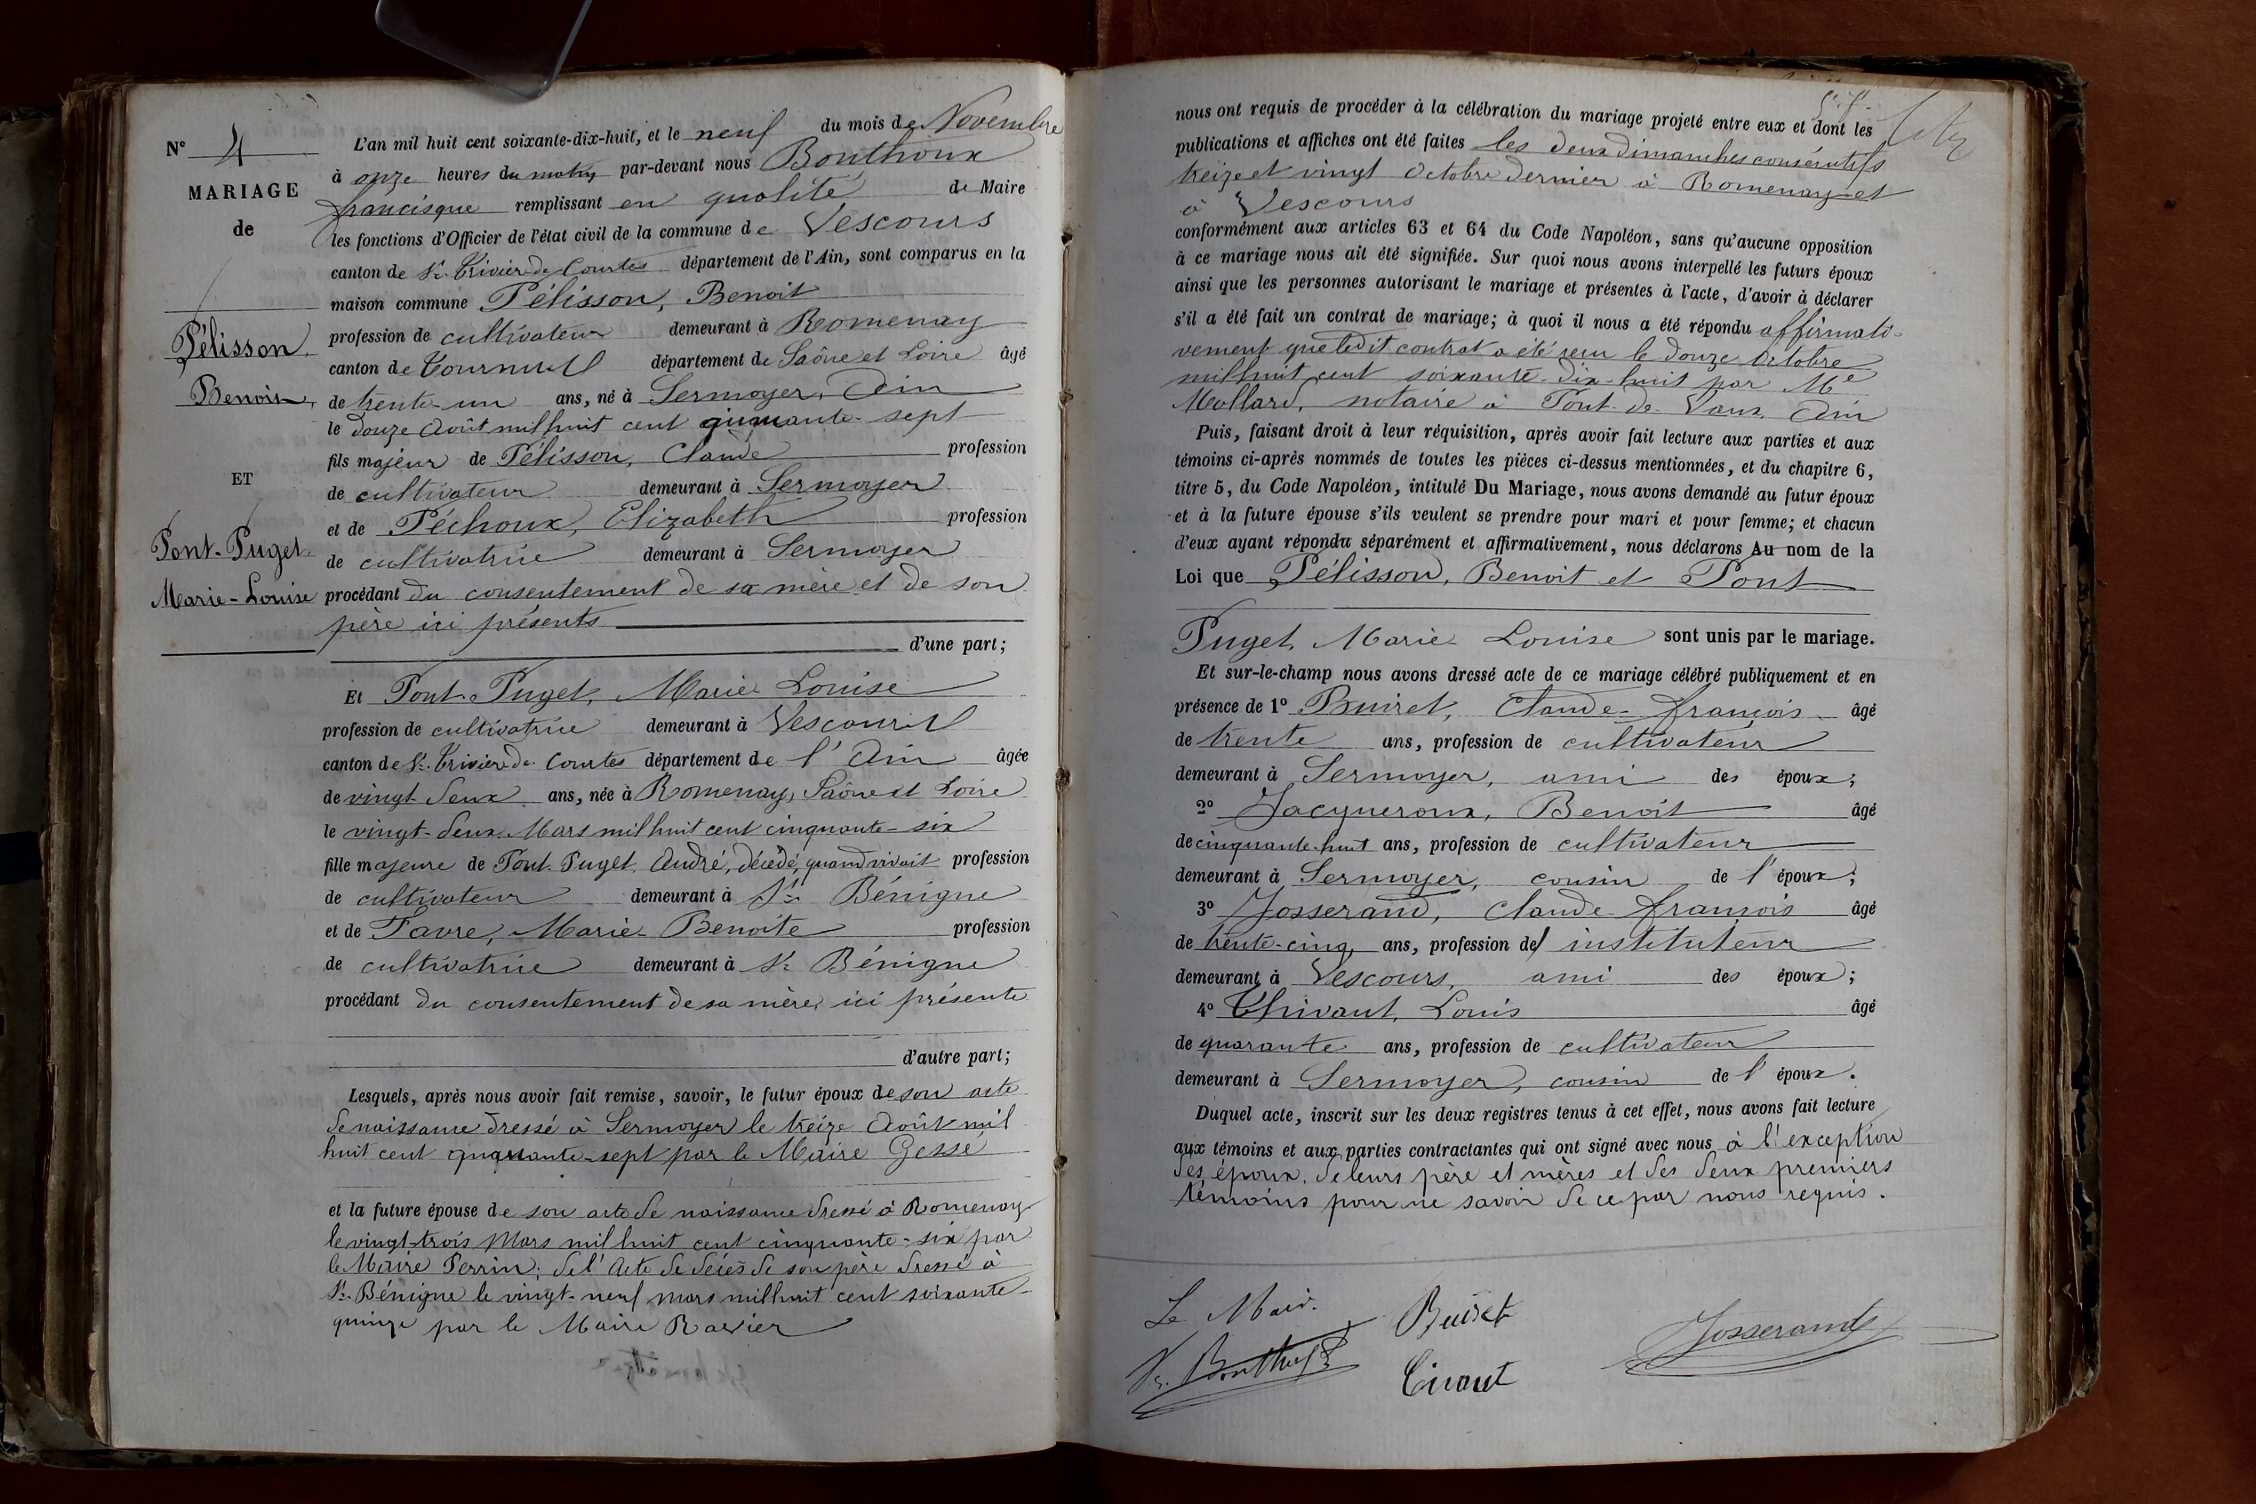 N° 4
MARIAGE
de
Pélisson,
Benoit,
ET
Pont-Puget
Marie-Louise
L'an mil huit cent soixante-dix-huit, et le neuf du mois de Novembre
à onze heures du matin par-devant nous Bonthoux
francisque remplissant en qualité de Maire
les fonctions d'Officier de l'état civil de la commune de Vescours
canton de St. Trivier de Courtes département de l'Ain, sont comparus en la
maison commune Pélisson, Benoit
profession de cultivateur demeurant à Romenay
canton de Tournus département de Saône et Loire âgé
de trente-un ans, né à Sermoyer, Ain
le douze Août mil huit cent quarante-sept
fils majeur de Pélisson, Claude profession
de cultivateur demeurant à Sermoyer
et de Péchoux, Elizabeth profession
de cultivatrice demeurant à Sermoyer
procédant du consentement de sa mère et de son
père ici présents
d'une part;
Et Pont-Puget, Marie Louise
profession de cultivatrice demeurant à Vescours
canton de St. Trivier de Courtes département de l'Ain âgée
de vingt-deux ans, née à Romenay, Saône et Loire
le vingt-deux Mars mil huit cent cinquante-six
fille majeure de Pont-Puget, André, décédé, quand vivait profession
de cultivateur demeurant à St. Bénigne
et de Favre, Marie-Benoite profession
de cultivatrice demeurant à St. Bénigne
procédant du consentement de sa mère, ici présente
d'autre part;
Lesquels, après nous avoir fait remise, savoir, le futur époux de son acte
de naissance dressé à Sermoyer le treize Août mil
huit cent quarante-sept par le Maire Gessé
et la future épouse de son acte de naissance dressé à Romenay
le vingt-trois Mars mil huit cent cinquante-six par
le Maire Perrin; de l'Acte de décès de son père dressé à
St. Bénigne le vingt-neuf mars mil huit cent soixante-
quinze par le Maire Ravier
nous ont requis de procéder à la célébration du mariage projeté entre eux et dont les
publications et affiches ont été faites les deux dimanches consécutifs
treize et vingt Octobre dernier à Romenay et
à Vescours
conformément aux articles 63 et 64 du Code Napoléon, sans qu'aucune opposition
à ce mariage nous ait été signifiée. Sur quoi nous avons interpellé les futurs époux
ainsi que les personnes autorisant le mariage et présentes à l'acte, d'avoir à déclarer
s'il a été fait un contrat de mariage; à quoi il nous a été répondu affirmati-
vement que ledit contrat a été reçu le douze Octobre
mil huit cent soixante-dix-huit par Me
Mollard, notaire à Pont-de-Vaux, Ain
Puis, faisant droit à leur réquisition, après avoir fait lecture aux parties et aux
témoins ci-après nommés de toutes les pièces ci-dessus mentionnées, et du chapitre 6,
titre 5, du Code Napoléon, intitulé Du Mariage, nous avons demandé au futur époux
et à la future épouse s'ils veulent se prendre pour mari et pour femme; et chacun
d'eux ayant répondu séparément et affirmativement, nous déclarons Au nom de la
Loi que Pélisson, Benoit et Pont
Puget, Marie Louise sont unis par le mariage.
Et sur-le-champ nous avons dressé acte de ce mariage célébré publiquement et en
présence de 1° Buiret, Claude-françois âgé
de trente ans, profession de cultivateur
demeurant à Sermoyer, ami des époux;
2° Jacqueroux, Benoit âgé
de cinquante-huit ans, profession de cultivateur
demeurant à Sermoyer, cousin de l'époux;
3° Josserand, Claude françois âgé
de trente-cinq ans, profession d' instituteur
demeurant à Vescours, ami des époux;
4° Thivaut, Louis âgé
de quarante ans, profession de cultivateur
demeurant à Sermoyer, cousin de l'époux.
Duquel acte, inscrit sur les deux registres tenus à cet effet, nous avons fait lecture
aux témoins et aux parties contractantes qui ont signé avec nous à l'exception
des époux, de leurs père et mères et des deux premiers
témoins pour ne savoir de ce par nous requis.
Le Maire.
Buiret
Josserand
Fr. Bonthoux
Tivaut